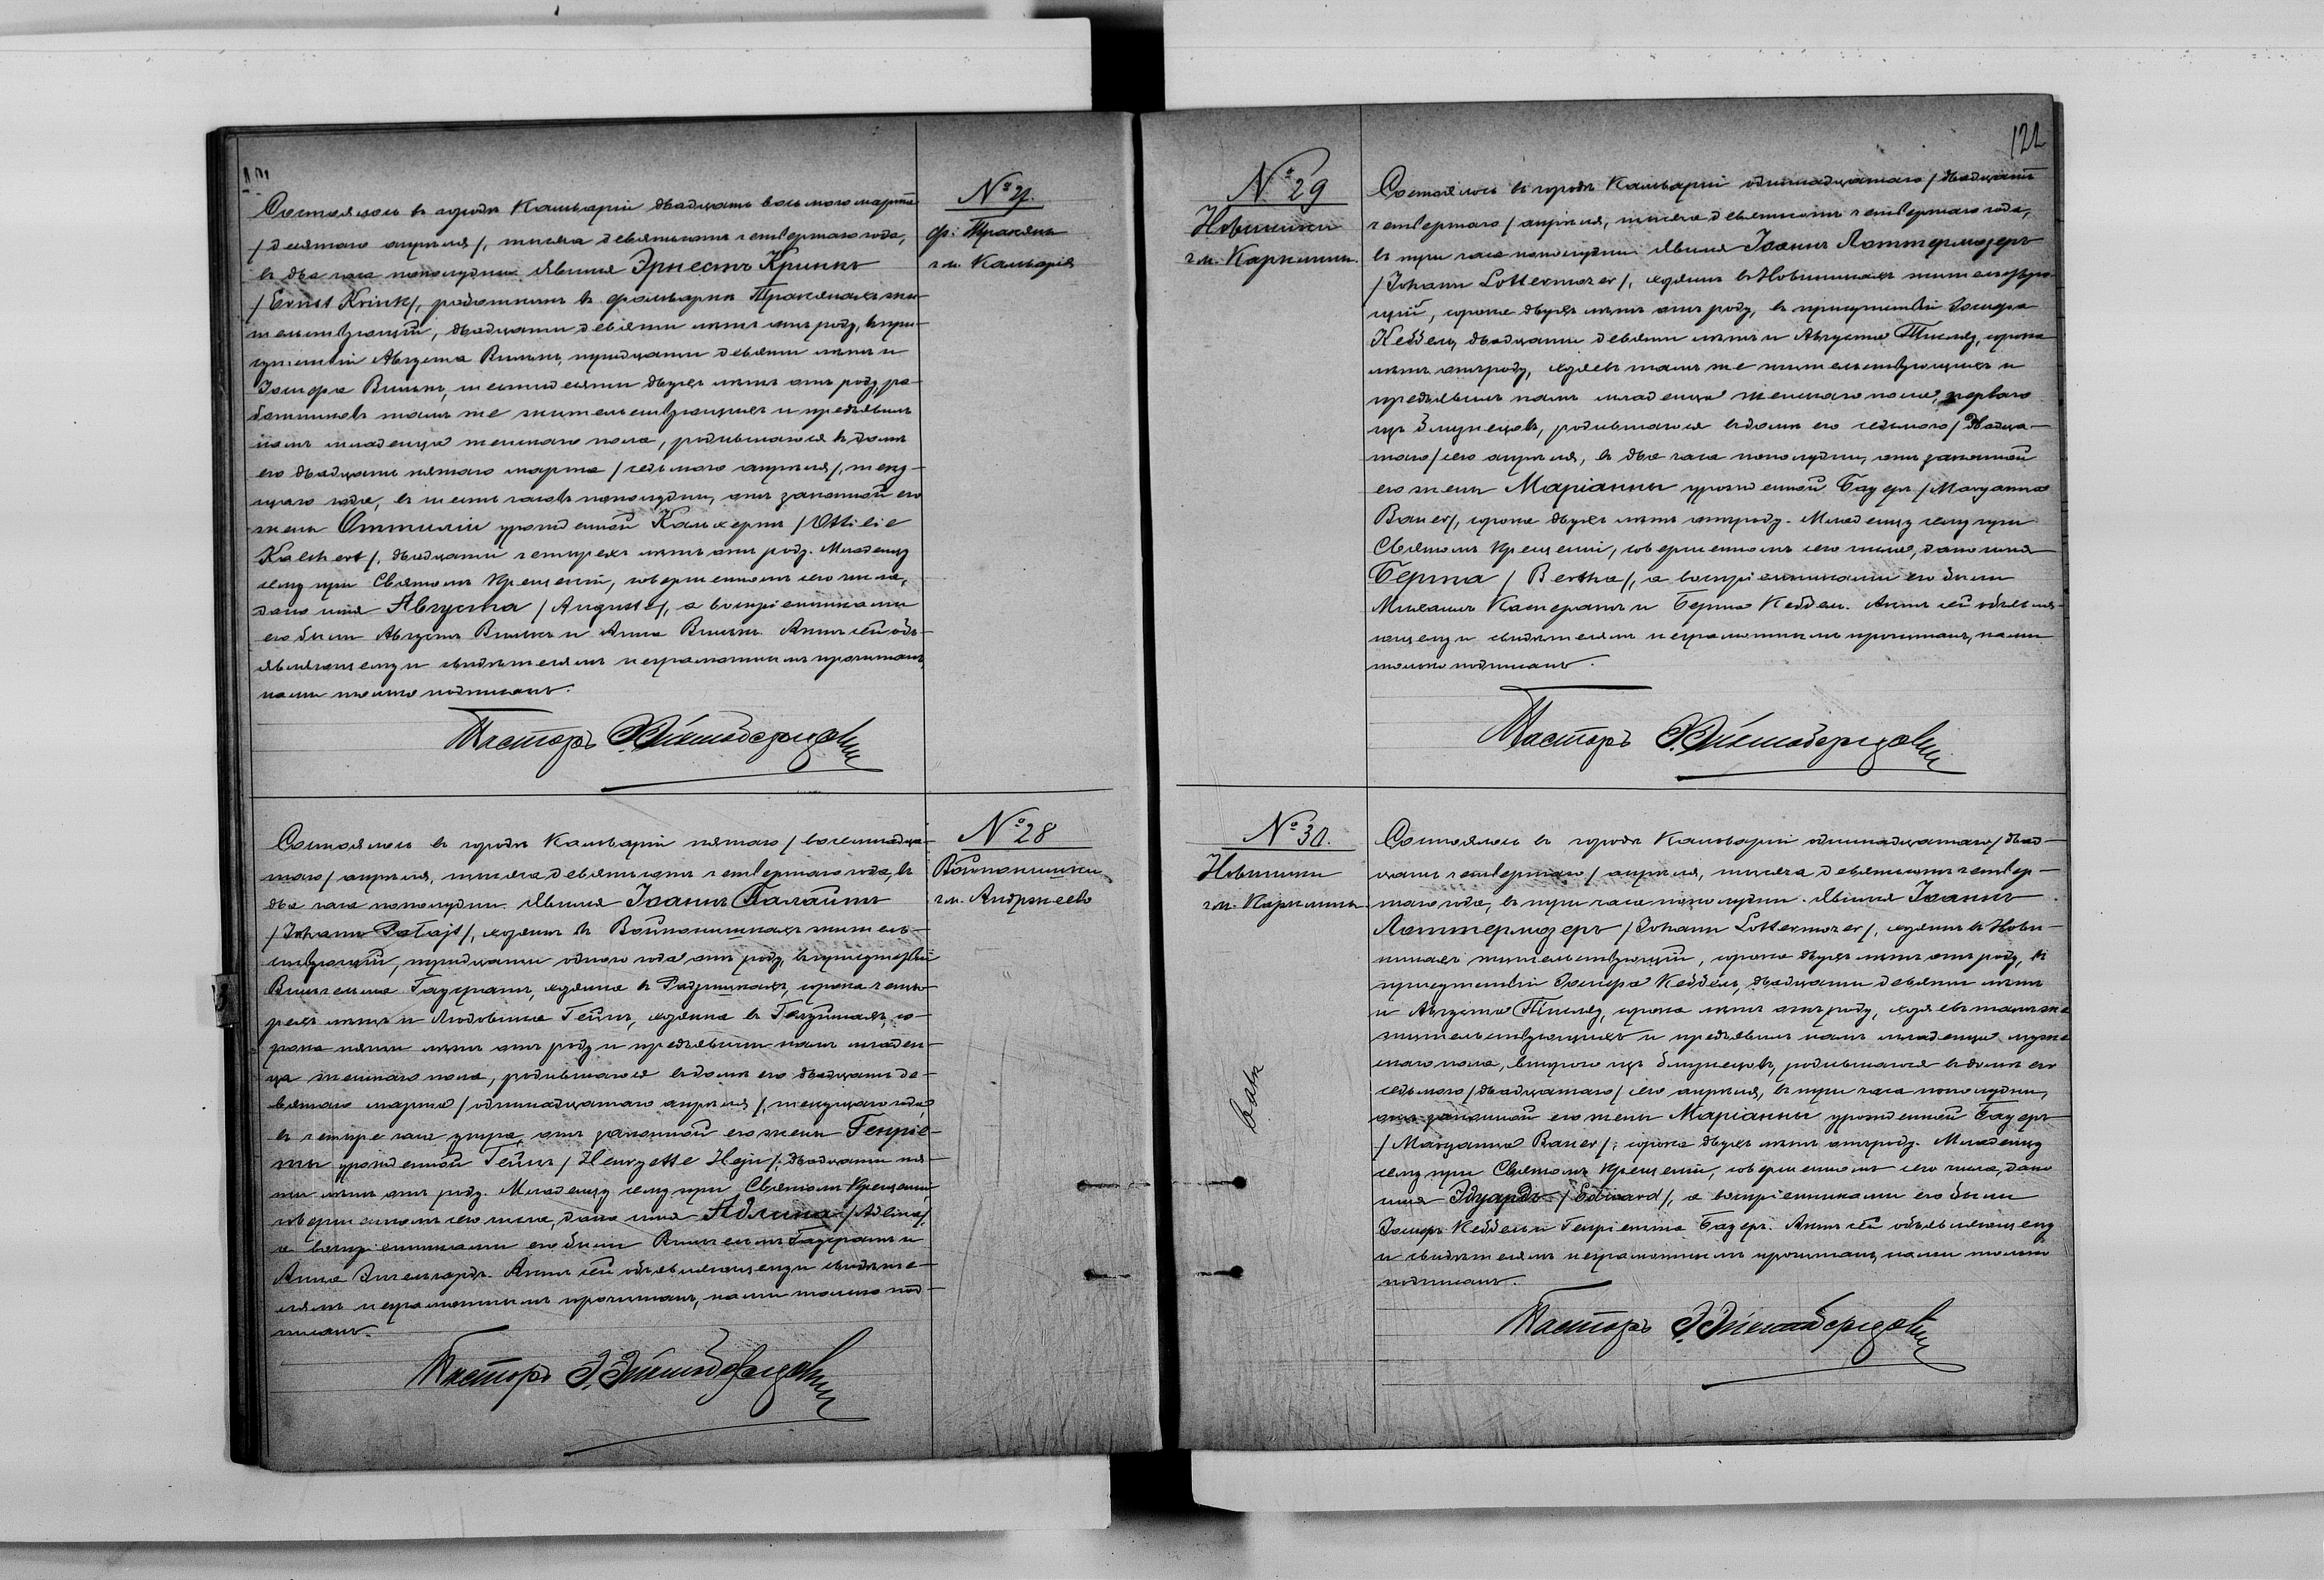 № 27.
ф. Тракяны
гм. Кальварія
Состоялось въ городѣ Кальваріи двадцать восьмого марта
/девятаго апрѣля/, тысяча девятьсотъ четвертаго года,
въ два часа пополудни. Явился Эрнестъ Кринкъ
/Ernst Krink/, работникъ въ фольваркѣ Тракянахъ жи-
тельствующій, двадцати девяти лѣтъ отъ роду, въ при-
сутствіи Августа Вильке, тридцати девяти лѣтъ и
Іосифа Вилькъ, шестидесяти двухъ лѣтъ отъ роду, ра-
ботниковъ тамъ же жительствующихъ и предъявилъ
намъ младенца женскаго пола, родившагося въ домѣ
его двадцать пятаго марта /седьмого апрѣля/, теку-
щаго года, въ шесть часовъ пополудни, отъ законной его
жены Оттиліи урожденной Кальхертъ /Ottilie
Kalchert/, двадцати четырехъ лѣтъ отъ роду. Младенцу
сему при Святомъ Крещеніи, совершенномъ сего числа,
дано имя Августа /Auguste/, а воспріемниками
его были Августъ Вилькъ и Анна Вилькъ. Актъ сей объ-
являющему и свидѣтелямъ неграмотнымъ прочитанъ,
нами только подписанъ.
Пасторъ
№ 28
Войпонишки
гм. Андржеево
Состоялось въ городѣ Кальваріи пятаго /восемнадца-
таго/ апрѣля, тысяча девятьсотъ четвертаго года, въ
два часа пополудни. Явился Іоаннъ Палайтъ
/Johann Palajt/, хозяинъ въ Войпонишкахъ житель-
ствующій, тридцати одного года отъ роду, въ присутствіи
Вильгельма Гаудманъ, хозяина въ, сорока четы-
рехъ лѣтъ и Людовика Гейнъ, хозяина въ, со-
рока пяти лѣтъ отъ роду и предъявилъ намъ младен-
ца женскаго пола, родившагося въ домѣ его двадцать де-
вятаго марта /одиннадцатаго апрѣля/, текущаго года,
въ четыре часа утра, отъ законной его жены Генріе-
ты урожденной Гейнъ /Henryette Hejn/, двадцати пя-
ти лѣтъ отъ роду. Младенцу сему при Святомъ Крещеніи,
совершенномъ сего числа, дано имя Адлина /Adlina/,
а воспріемниками его были Вильгельмъ и
Анна Энгельгардъ. Актъ сей объявляющему и свидѣте-
лямъ неграмотнымъ прочитанъ, нами только под-
писанъ.
Пасторъ
122
№ 29
Новиники
гм. Карклины.
Состоялось въ городѣ Кальваріи одиннадцатаго /двадцать
четвертаго/ апрѣля, тысяча девятьсотъ четвертаго года,
въ три часа пополудни. Явился Іоаннъ Лоттермозеръ
/Johann Lottermozer/, хозяинъ въ Новиникахъ жительствую-
щій, сорока двухъ лѣтъ отъ роду, въ присутствіи Іосифа
Кеддель, двадцати девяти лѣтъ и Августа Тислеръ, сорока
лѣтъ отъ роду, хозяевъ тамъ же жительствующихъ и
предъявилъ намъ младенца женскаго пола, перваго
изъ близнецовъ, родившагося въ домѣ его седьмого /двадца-
таго/ сего апрѣля, въ два часа пополудни, отъ законной
его жены Маріанны урожденной Бауеръ /Maryanna
Bauer/, сорока двухъ лѣтъ отъ роду. Младенцу сему при
Святомъ Крещеніи, совершенномъ сего числа, дано имя
Берта /Bertha/, а воспріемниками его были
и Берта Кеддель. Актъ сей объявля-
ющему и свидѣтелямъ неграмотнымъ прочитанъ, нами
только подписанъ.
Пасторъ
№ 30.
Новиники
гм. Карклины.
Состоялось въ городѣ Кальваріи одиннадцатаго /двад-
цать четвертаго/ апрѣля, тысяча девятьсотъ четвер-
таго года, въ три часа пополудни. Явился Іоаннъ
Лоттермозеръ /Johann Lottermozer/, хозяинъ въ Нови-
никахъ жительствующій, сорока двухъ лѣтъ отъ роду, въ
присутствіи Іосифа Кеддель, двадцати девяти лѣтъ
и Августа Тислеръ, сорока лѣтъ отъ роду, хозяевъ тамъ же
жительствующихъ и предъявилъ намъ младенца муже-
скаго пола, второго изъ близнецовъ, родившагося въ домѣ его
седьмого /двадцатаго/ сего апрѣля, въ три часа пополудни,
отъ законной его жены Маріанны урожденной Бауеръ
/Maryanna Bauer/, сорока двухъ лѣтъ отъ роду. Младенцу
сему при Святомъ Крещеніи, совершенномъ сего числа, дано
имя Эдуардъ /Edward/, а воспріемниками его были
Іосифъ Кеддель и Генріетта Бауеръ. Актъ сей объявляющему
и свидѣтелямъ неграмотнымъ прочитанъ, нами только
подписанъ.
Пасторъ